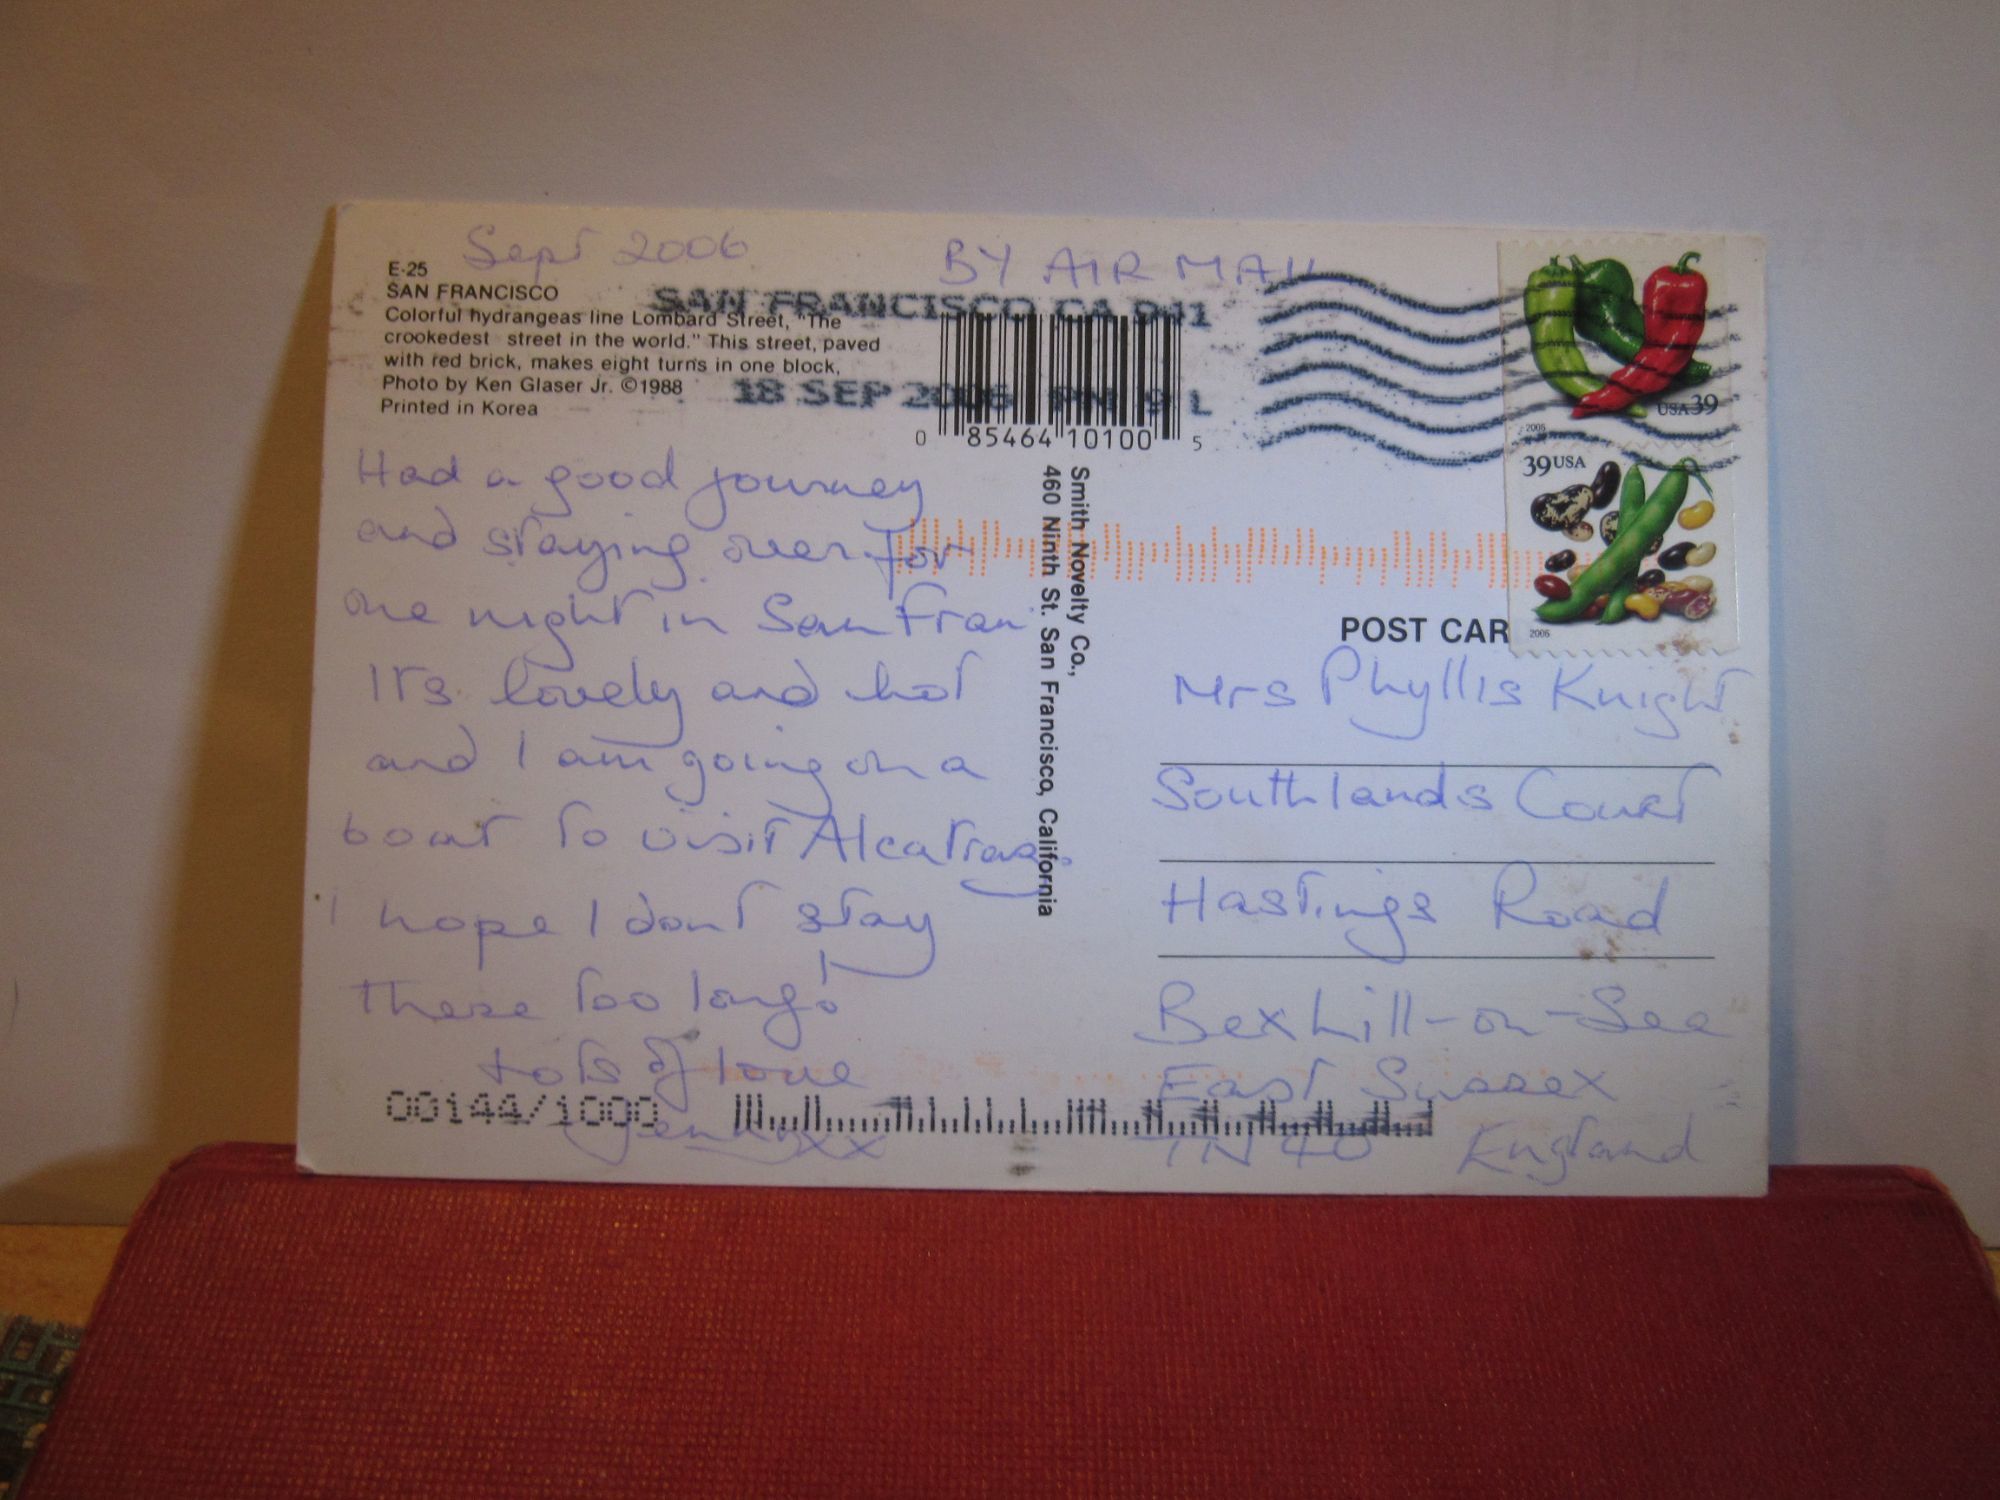 Sept 2006
BY AIR MAIL
E-25
SAN FRANCISCO
Colorful hydrangeas line Lombard Street, "The
crookedest street in the world." This street, paved
with red brick, makes eight turns in one block,
Photo by Ken Glaser Jr. ©1988
Printed in Korea
SAN FRANCISCO CA 941
18 SEP 2006 PM 9 L
0 85464 10100 5
USA 39
2006
39 USA
2006
Smith Novelty Co.,
460 Ninth St. San Francisco, California
POST CAR
Had a good journey
and staying over for
one night in San Fran'
It's lovely and hot
and I am going on a
boat to visit Alcatraz.
I hope I dont stay
there too long!
Lots of love
Jenny xx
Mrs Phyllis Knight
Southlands Court
Hastings Road
Bexhill-on-Sea
East Sussex
TN 40 England
00144/1000